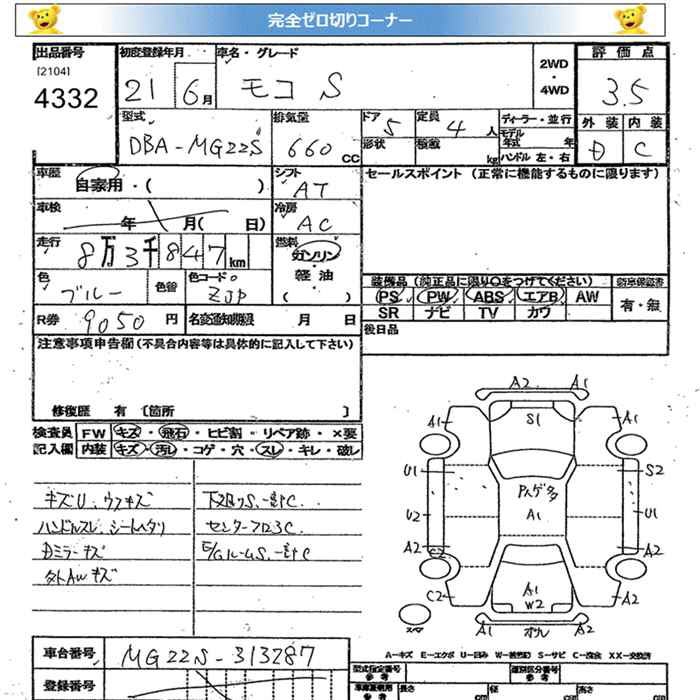 完全ゼロ切りコーナー
出品番号
[2104]
4332
初度登録年月
21 6月
車名・グレード
モコ S
2WD
・
4WD
評価点
3.5
外装 内装
D C
型式
DBA-MG22S
排気量
660 CC
ドア 5
形状
定員 4 人
積載 kg
ディーラー・並行
モデル年式 年
ハンドル 左・右
車歴
自家用・( )
シフト
AT
セールスポイント (正常に機能するものに限ります)
車検
年 月( 日)
冷房
AC
走行
8万3千847km
燃料
ガソリン
軽油
( )
色
ブルー
色替
色コードo
ZJP
装備品 (純正品に限り○をつけてください)
PS PW ABS エアB AW
SR ナビ TV カワ
新車保証書
有・無
R券 9050 円
名変通知期限 月 日
後日品
注意事項申告欄(不具合内容等は具体的に記入して下さい)
修復歴 有 [箇所 ]
検査員
記入欄
FW キズ・飛石・ヒビ割・リペア跡・×要
内装 キズ・汚レ・コゲ・穴・スレ・キレ・破レ
キズU、ウスキズ
ハンドルスレ、シートヘタリ
Dミラーキズ
外AWキズ
下廻りS、一部C
センターフロアC
E/GルームS、一部C
A2 A1
A1 S1 A1
U1 S2
Pハゲ多
U2 A1 U1
A2 C2 A2
C2 A1 W2 A2
スペア A1 オリル A2
A−キズ E−エクボ U−凹み W−補修跡 S−サビ C−腐食 XX−交換済
車台番号
MG22S-313287
登録番号
型式指定番号
参考
類別区分番号
参考
長さ cm
幅 cm
高さ cm